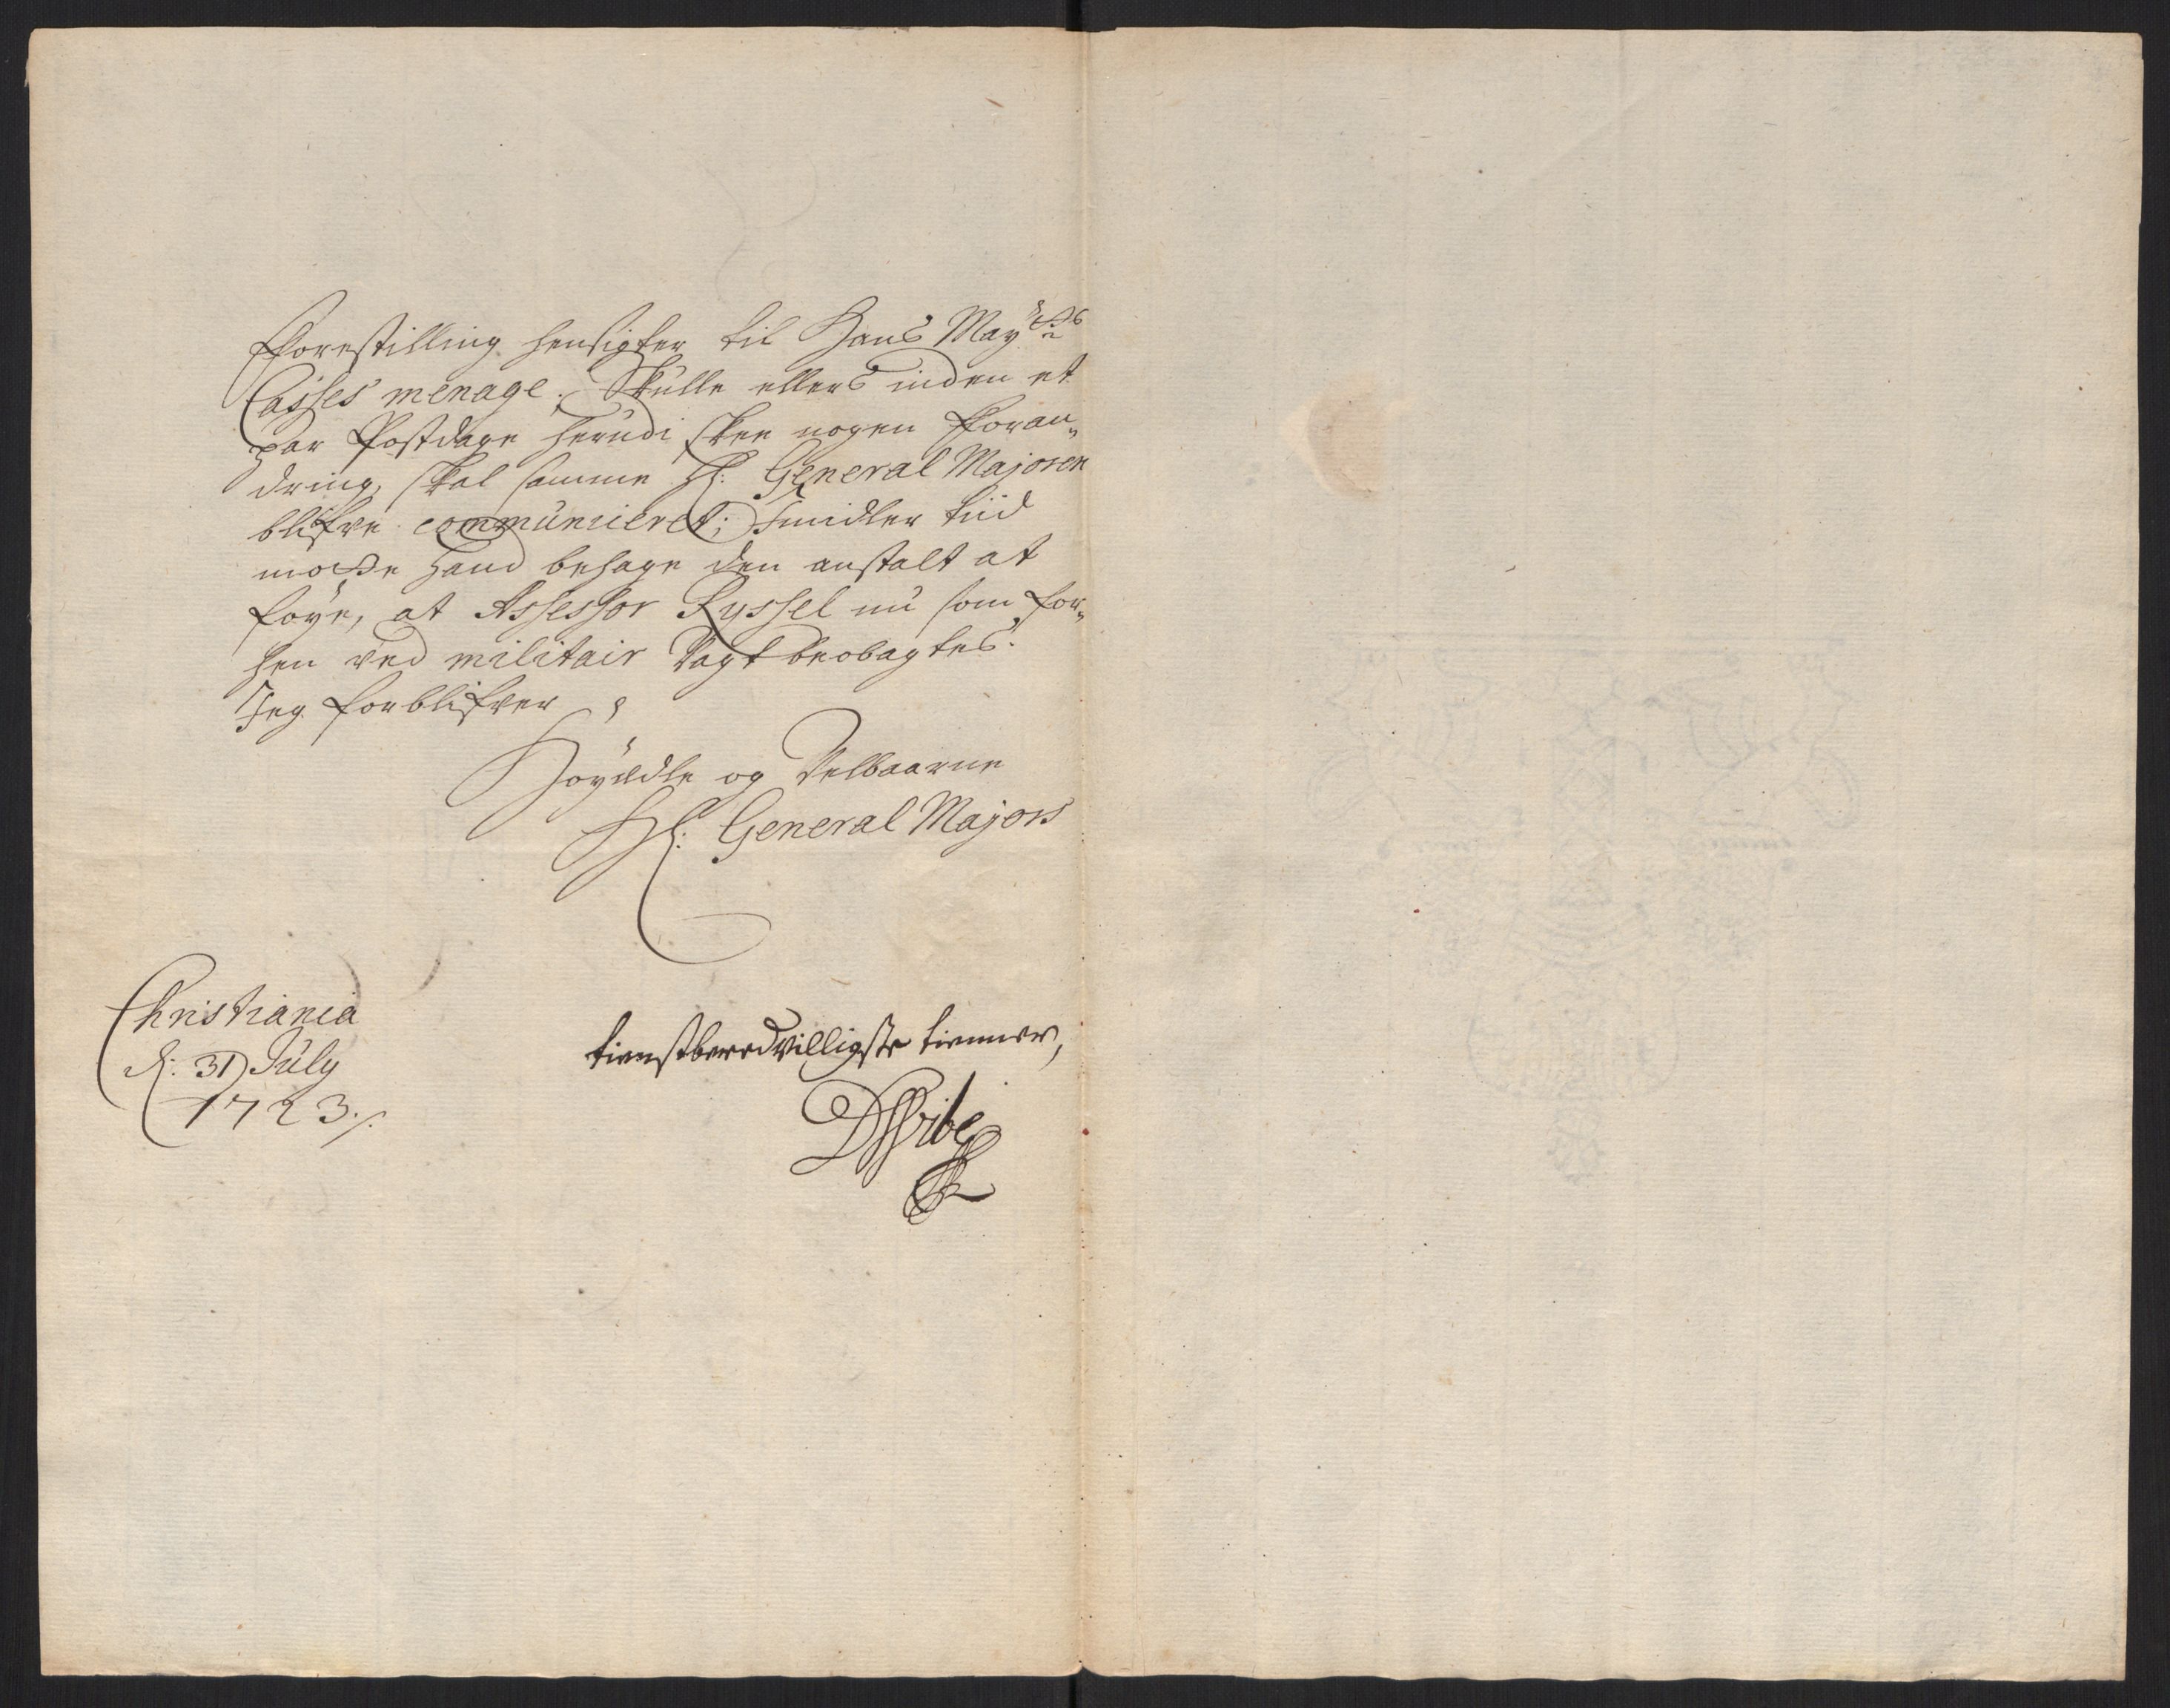 Forestilling hensigter til Hans May:ts
Casses menage. Skulle ellers inden et
par Postdage herudi skee nogen foran„
dring, skal samme Hr: General Majoren
blifve communiceret; Imidler tiid
motte hand behage den anstalt at
føye, at Assessor Ryssel nu som for„
hen ved militair Vagt beobagtes.
Jeg forblifver
Høyædle og Velbaarne
Hr: General Majors
Christiania
d: 31 July
1723./.
tienstberedvilligste tienner,
DVibe